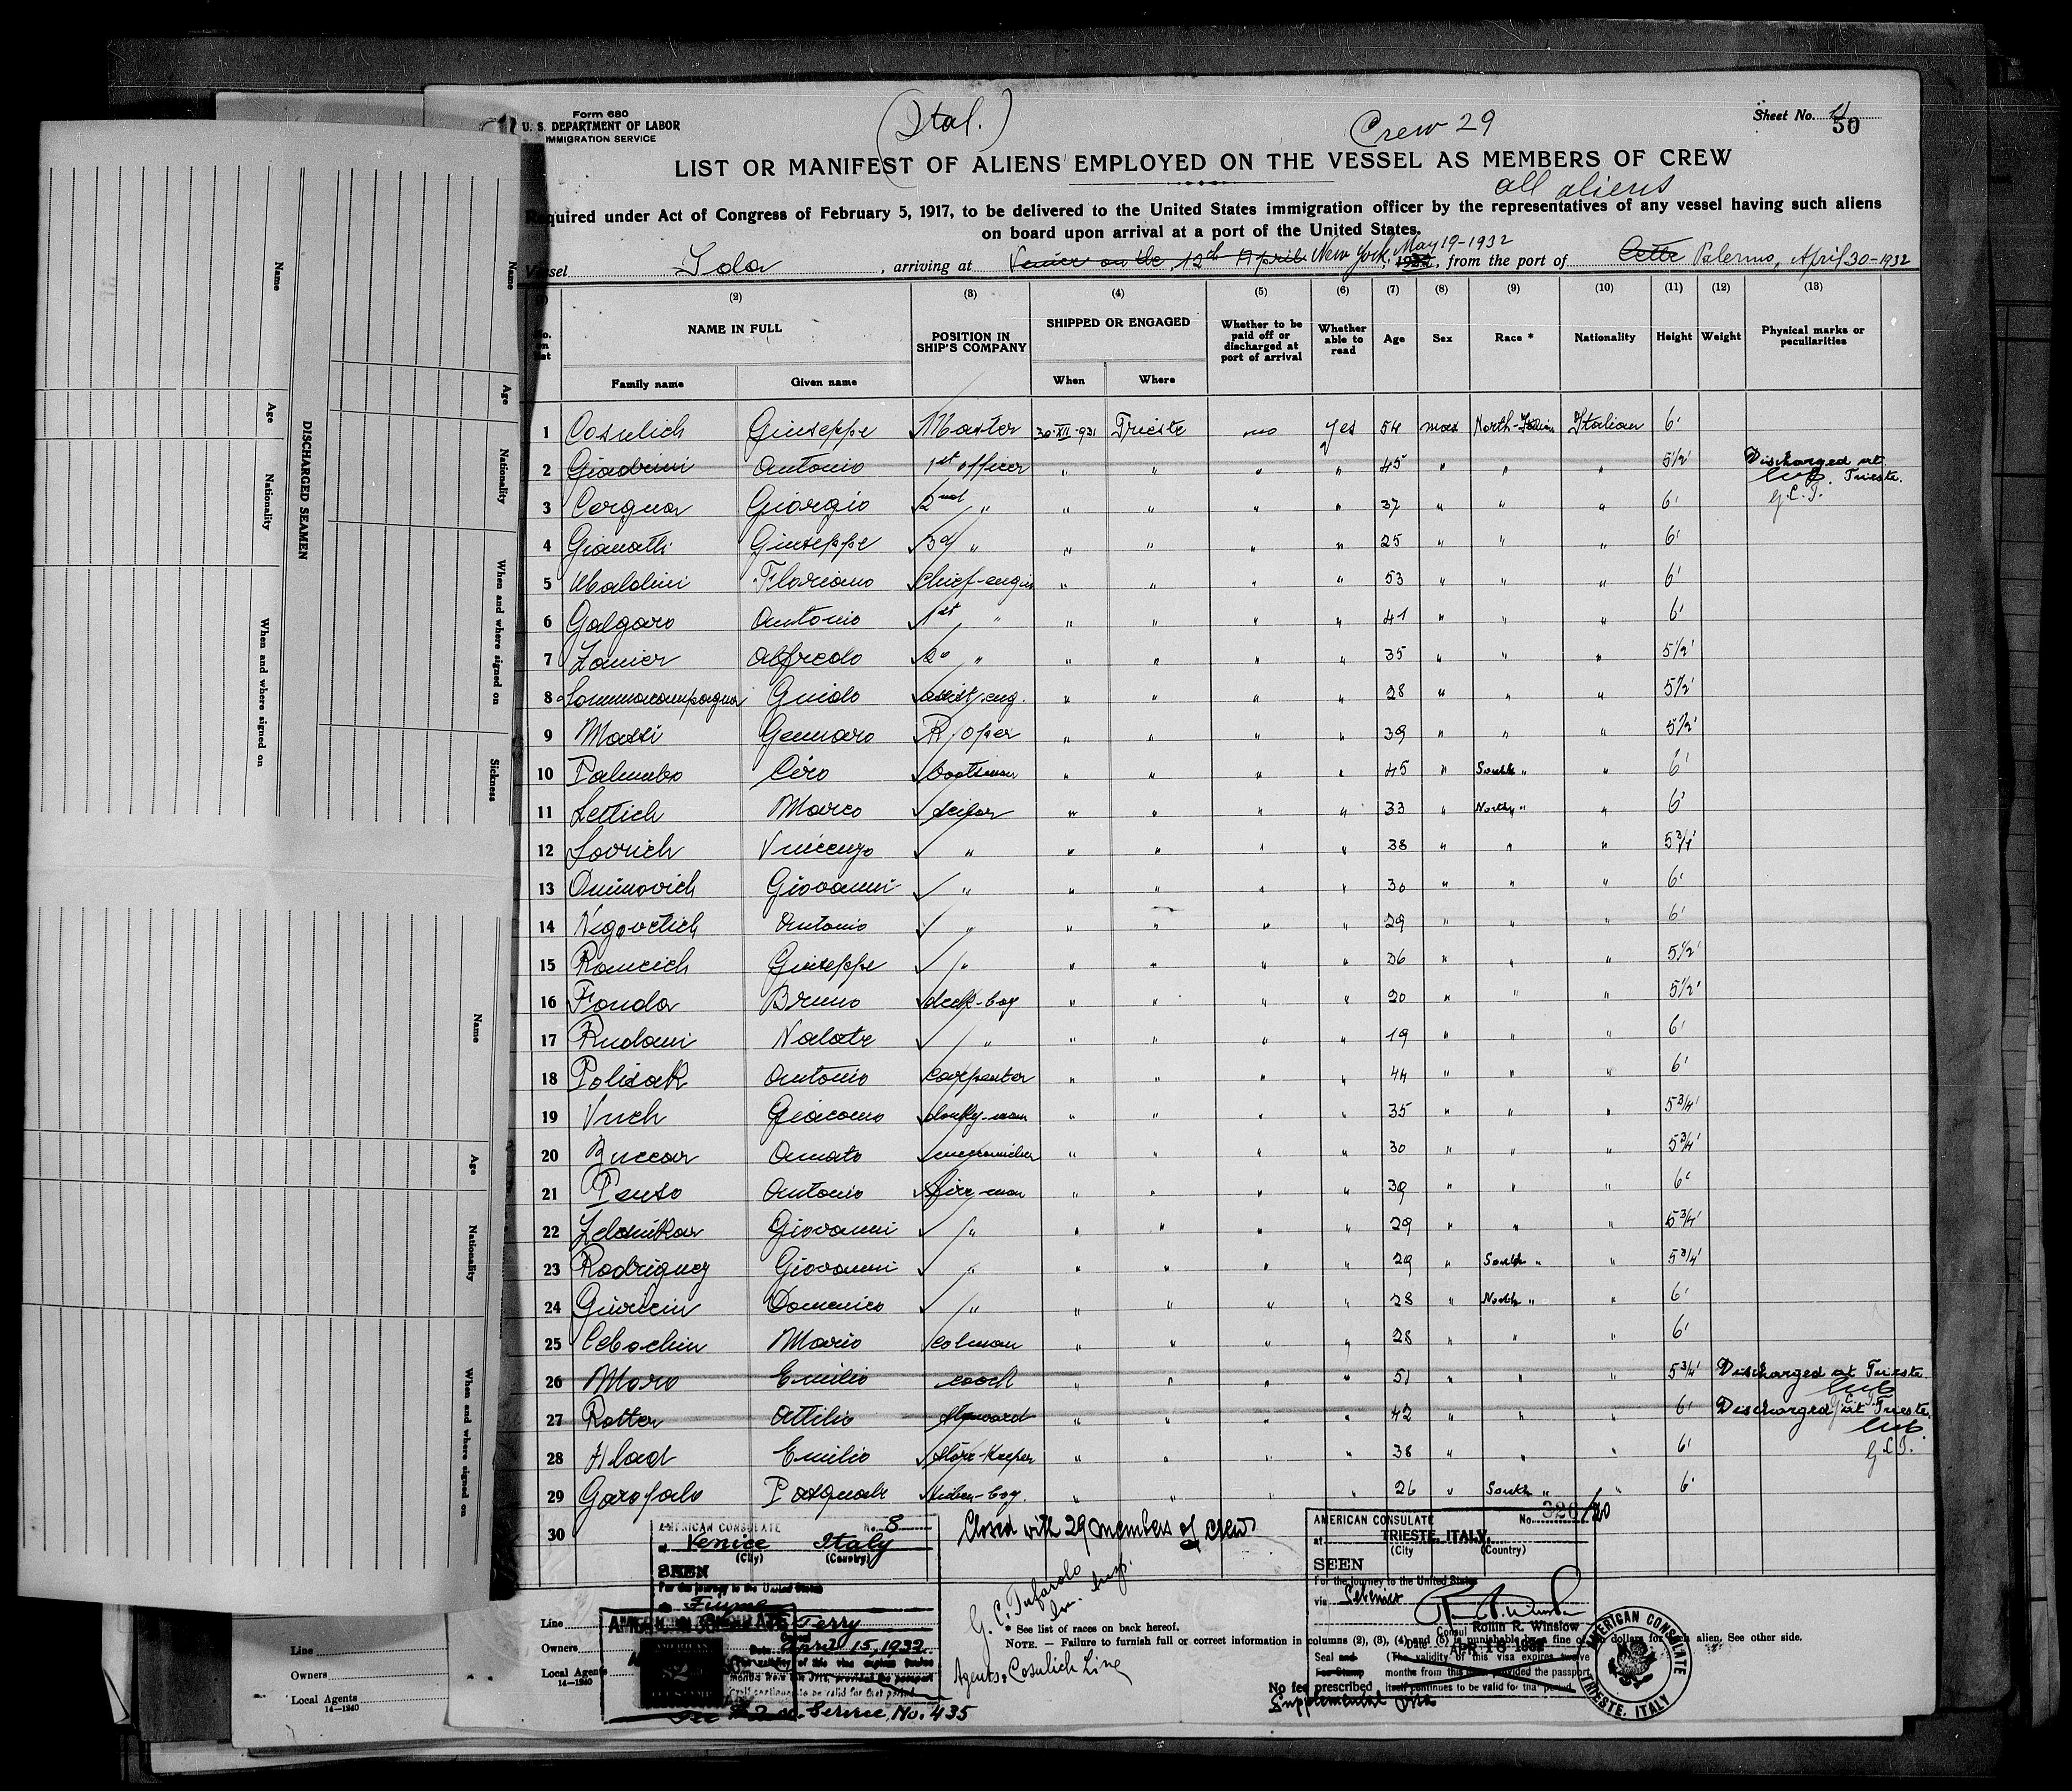 Form 680
U. S. DEPARTMENT OF LABOR
IMMIGRATION SERVICE
(Ital.)
Crew 29
Sheet No. 4
50
LIST OR MANIFEST OF ALIENS EMPLOYED ON THE VESSEL AS MEMBERS OF CREW
all aliens
Required under Act of Congress of February 5, 1917, to be delivered to the United States immigration officer by the representatives of any vessel having such aliens
on board upon arrival at a port of the United States.
Vessel Ida, arriving at Venice on the 12th April New York, May 19-1932 1932, from the port of Cette Palermo, April 30-1932
(2) (3) (4) (5) (6) (7) (8) (9) (10) (11) (12) (13)
No. on list NAME IN FULL POSITION IN SHIP'S COMPANY SHIPPED OR ENGAGED Whether to be paid off or discharged at port of arrival Whether able to read Age Sex Race * Nationality Height Weight Physical marks or peculiarities
Family name Given name When Where
1 Cosulich Giuseppe Master 30·XII·931 Trieste no yes 54 North-Italian Italian 6'
2 Giadrini Antonio 1st officer " " " " 45 " " " 5 1/2' Discharged at Trieste.
3 Corgnar Giorgio 2nd " " " " " 37 " " " 6' G.C.T.
4 Gianatti Giuseppe 3d " " " " " 25 " " " 6'
5 Ubaldini Floriano chief-engin " " " " 53 " " " 6'
6 Galgaro Antonio 1st " " " " " 41 " " " 6'
7 Zanier Alfredo 2° " " " " " 35 " " " 5 1/2'
8 Sommacompagna Guido assist. eng. " " " " 28 " " " 5 1/2'
9 Massi Gennaro R / oper " " " " 39 " " " 5 1/2'
10 Palumbo Ciro boatsman " " " " 45 " South " " 6'
11 Lettich Marco seilor " " " " 33 " North " " 6'
12 Lovrich Vincenzo " " " " " 38 " " " 5 3/4'
13 Dminovich Giovanni " " " " " 30 " " " 6'
14 Negovetich Antonio " " " " " 29 " " " 6'
15 Rancich Giuseppe " " " " " 36 " " " 5 1/2'
16 Fonda Bruno deck-boy " " " " 20 " " " 5 1/2'
17 Rudani Natale " " " " " 19 " " " 6'
18 Polisak Antonio carpenter " " " " 44 " " " 6'
19 Vuch Giacomo donky-man " " " " 35 " " " 5 3/4'
20 Buccar Amato " " " " 30 " " " 5 3/4'
21 Penso Antonio fire-man " " " " 39 " " " 6'
22 Zelesnikar Giovanni " " " " " 29 " " " 5 3/4'
23 Rodriguez Giovanni " " " " " 29 " South " " 5 3/4'
24 Giuricin Domenico " " " " " 28 " North " " 6'
25 Cebochin Mario colman " " " " 28 " " " 6'
26 Moro Emilio coock " " " " 51 " " " 5 3/4' Discharged at Trieste
27 Rotter Attilio Steward " " " " 42 " " " 6' Discharged at Trieste.
28 Hlad Emilio store-keeper " " " " 38 " " " 6' G.C.T.
29 Garofalo Pasquale kitchen-boy. " " " " 26 " South " " 6'
30
Closed with 29 members of crew
G. C. Tufarolo
Im. Insp.
AMERICAN CONSULATE No. 8
at Venice Italy
(City) (Country)
SEEN
For the journey to the United States
Fiume
Terry
Date April 15, 1932.
Service No. 435
AMERICAN CONSULATE No. 326/20
at TRIESTE, ITALY.
(City (Country)
SEEN
For the journey to the United States
via Sebenico
Rollin R. Winslow
Consul
Date APR 18 1932
(The validity of this visa expires twelve
months from this date provided the passport
itself continues to be valid for that period.
Seal and
Fee Stamp
No fee prescribed
Supplemental visa
AMERICAN CONSULATE TRIESTE, ITALY
* See list of races on back hereof.
NOTE. — Failure to furnish full or correct information in columns (2), (3), (4) and (5) is punishable by a fine of ten dollars for each alien. See other side.
Line
Owners
Local Agents
14—1240
Agents: Cosulich Line
Line
Owners
Local Agents
14—1240
DISCHARGED SEAMEN
Name
Age
Nationality
When and where signed on
Name
Age
Nationality
When and where signed on
Sickness
Name
Age
Nationality
When and where signed on